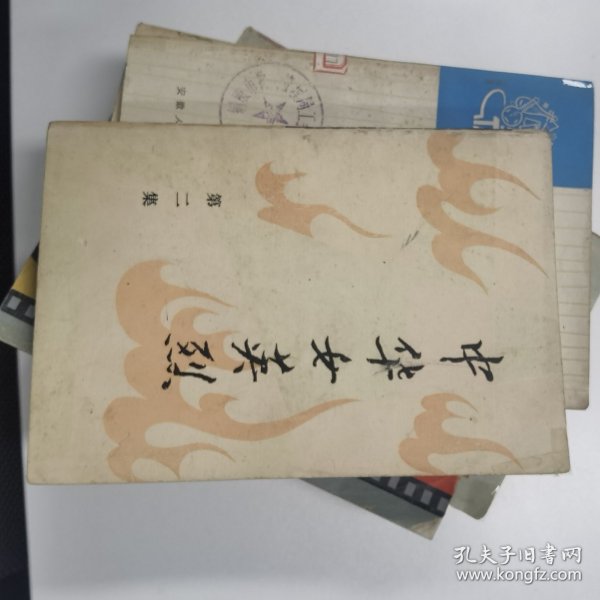 中华女英烈
第二集
安徽人
孔夫子旧书网
www.kongfz.com